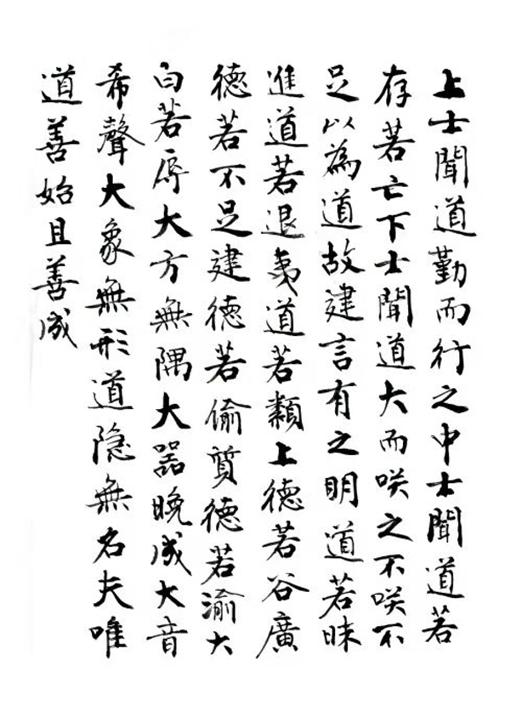 上士聞道勤而行之中士聞道若
存若亡下士聞道大而咲之不咲不
足以為道故建言有之明道若昧
進道若退夷道若類上德若谷廣
德若不足建德若偷質德若渝大
白若辱大方無隅大器晚成大音
希聲大象無形道隐無名夫唯
道善始且善成